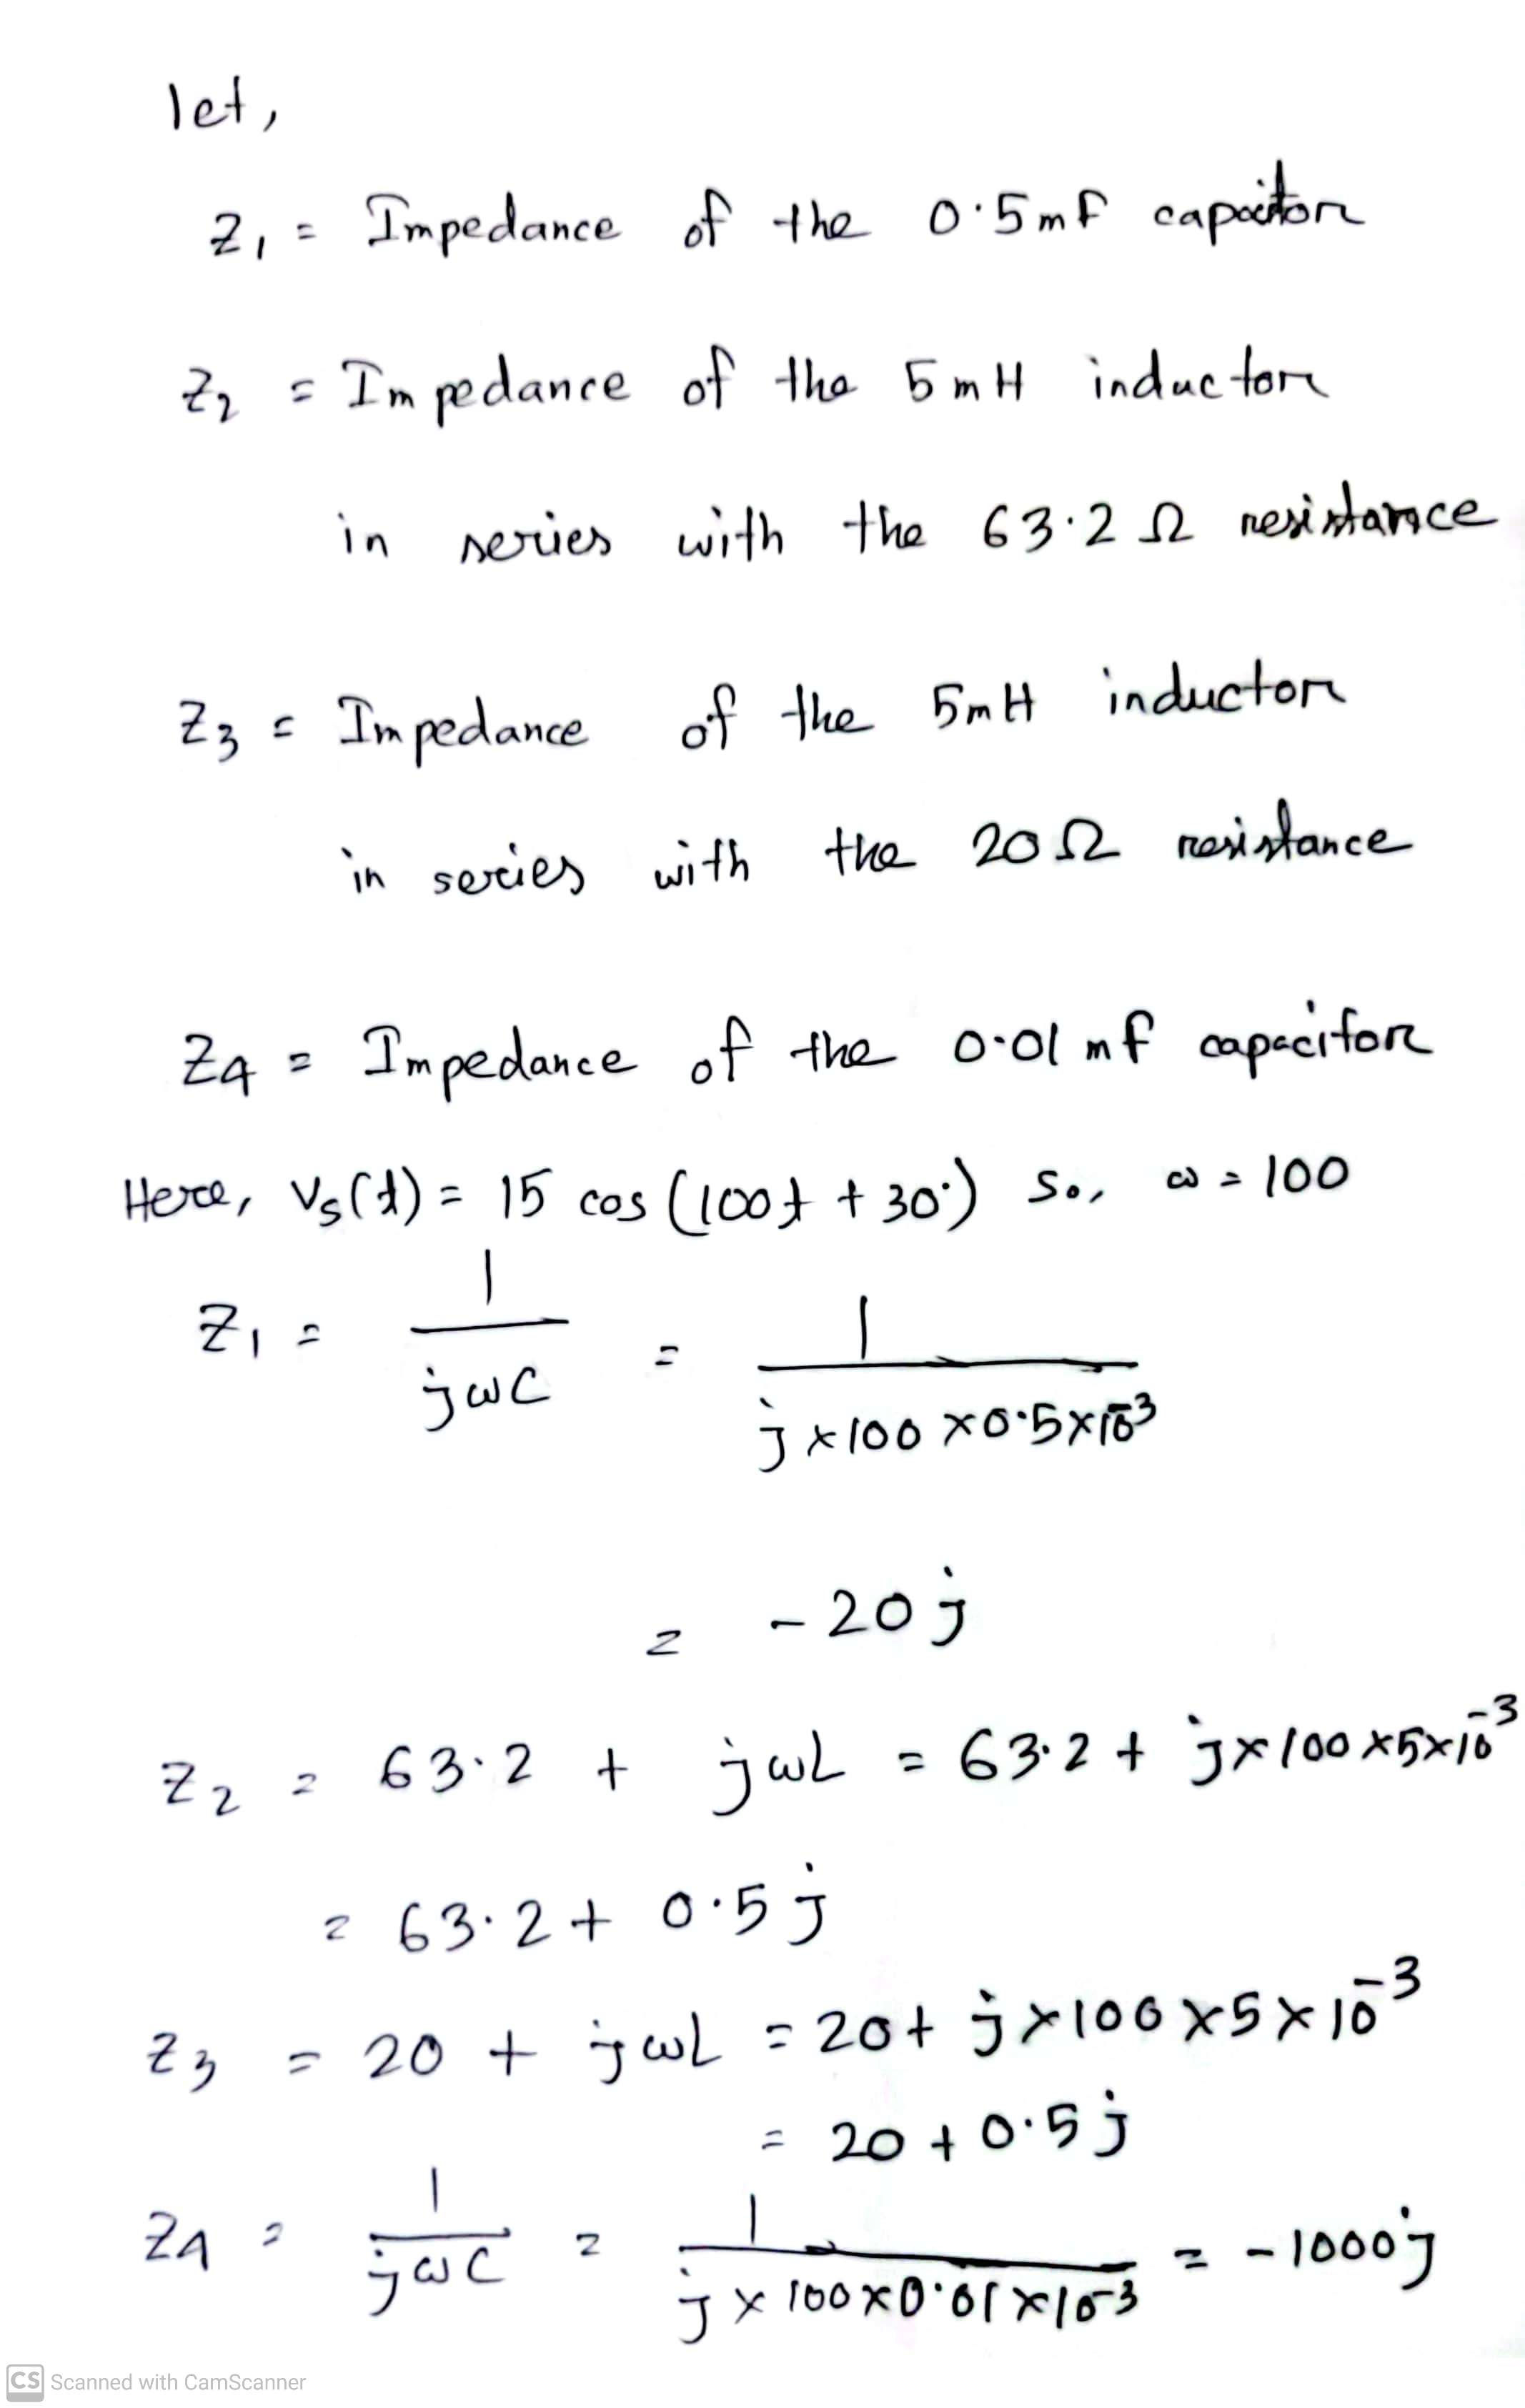 let,
Z₁ = Impedance of the 0.5mF capacitor
Z₂ = Impedance of the 5mH inductor
in series with the 63.2 Ω resistance
Z₃ = Impedance of the 5mH inductor
in series with the 20Ω resistance
Z₄ = Impedance of the 0.01 mF capacitor
Here, Vs(t) = 15 cos (100t + 30°) so, ω = 100
Z₁ = 1/(jωC) = 1/(j×100×0.5×10⁻³)
= -20j
Z₂ = 63.2 + jωL = 63.2 + j×100×5×10⁻³
= 63.2 + 0.5j
Z₃ = 20 + jωL = 20 + j×100×5×10⁻³
= 20 + 0.5j
Z₄ = 1/(jωC) = 1/(j×100×0.01×10⁻³) = -1000j
CS Scanned with CamScanner